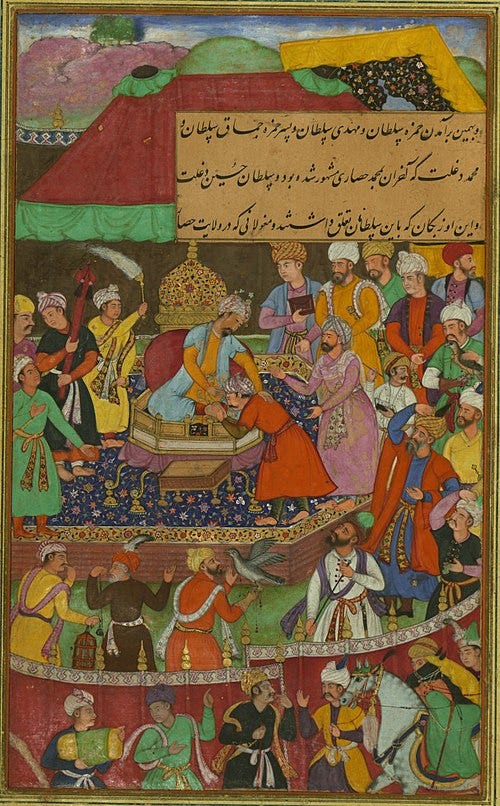 و همین برآمدن حمزه سلطان و مهدی سلطان و پسر حمزه سلطان و
محمد دغلت که آخران بمحمد حصاری مشهور شده بود و سلطان حسین دغلت
و این اوزبکان که باین سلطانان تعلق داشتند و مغولانی که در ولایت حصا